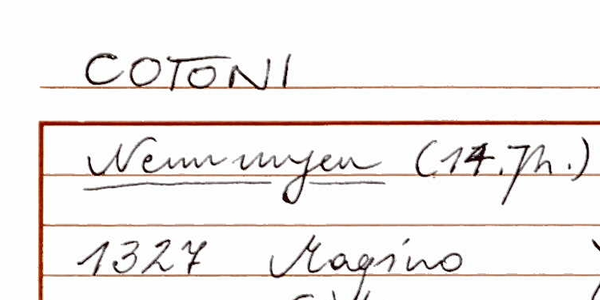 COTONI
Nennungen (14. Jh.)
1327 Magino